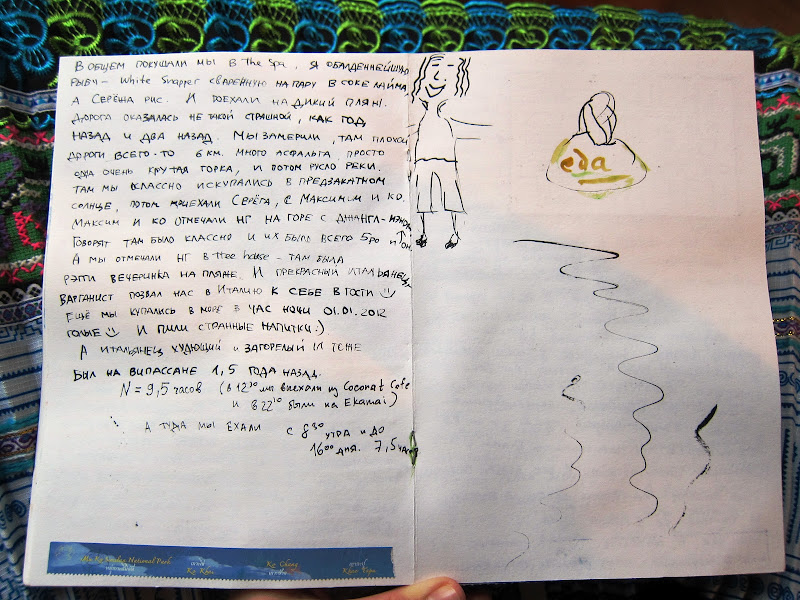 В общем покушали мы в The Spa, я обалденнейшую
рыбу - White Snapper сваренную на пару в соке лайма,
а Серёша рис. И поехали на дикий пляж.
Дорога оказалась не такой страшной, как год
назад и два назад. Мы замерили, там плохой
дороги всего-то 6 км. Много асфальта, просто
одна очень крутая горка, и потом русло реки.
Там мы классно искупались в предзакатном
солнце, потом приехали Серёга, с Максимим и ко.
Максим и ко отмечали НГ на горе с джангл-
Говорят там было классно и их было всего 5ро и он
А мы отмечали НГ в tree house - там была
рэгги вечеринка на пляже. И прекрасный итальянец
варганист позвал нас в Италию к себе в гости ☺
Ещё мы купались в море в час ночи 01.01.2012
голые ☺ И пили странные напитки:)
А итальянец худющий и загорелый и тоже
был на випассане 1,5 года назад.
N = 9,5 часов (в 12³⁰ мы выехали из Coconut Cafe
и в 22¹⁰ были на Ekamai)
А туда мы ехали с 8³⁰ утра и до
16⁰⁰ дня. 7,5 часов
National Park
Ko Chang
eda